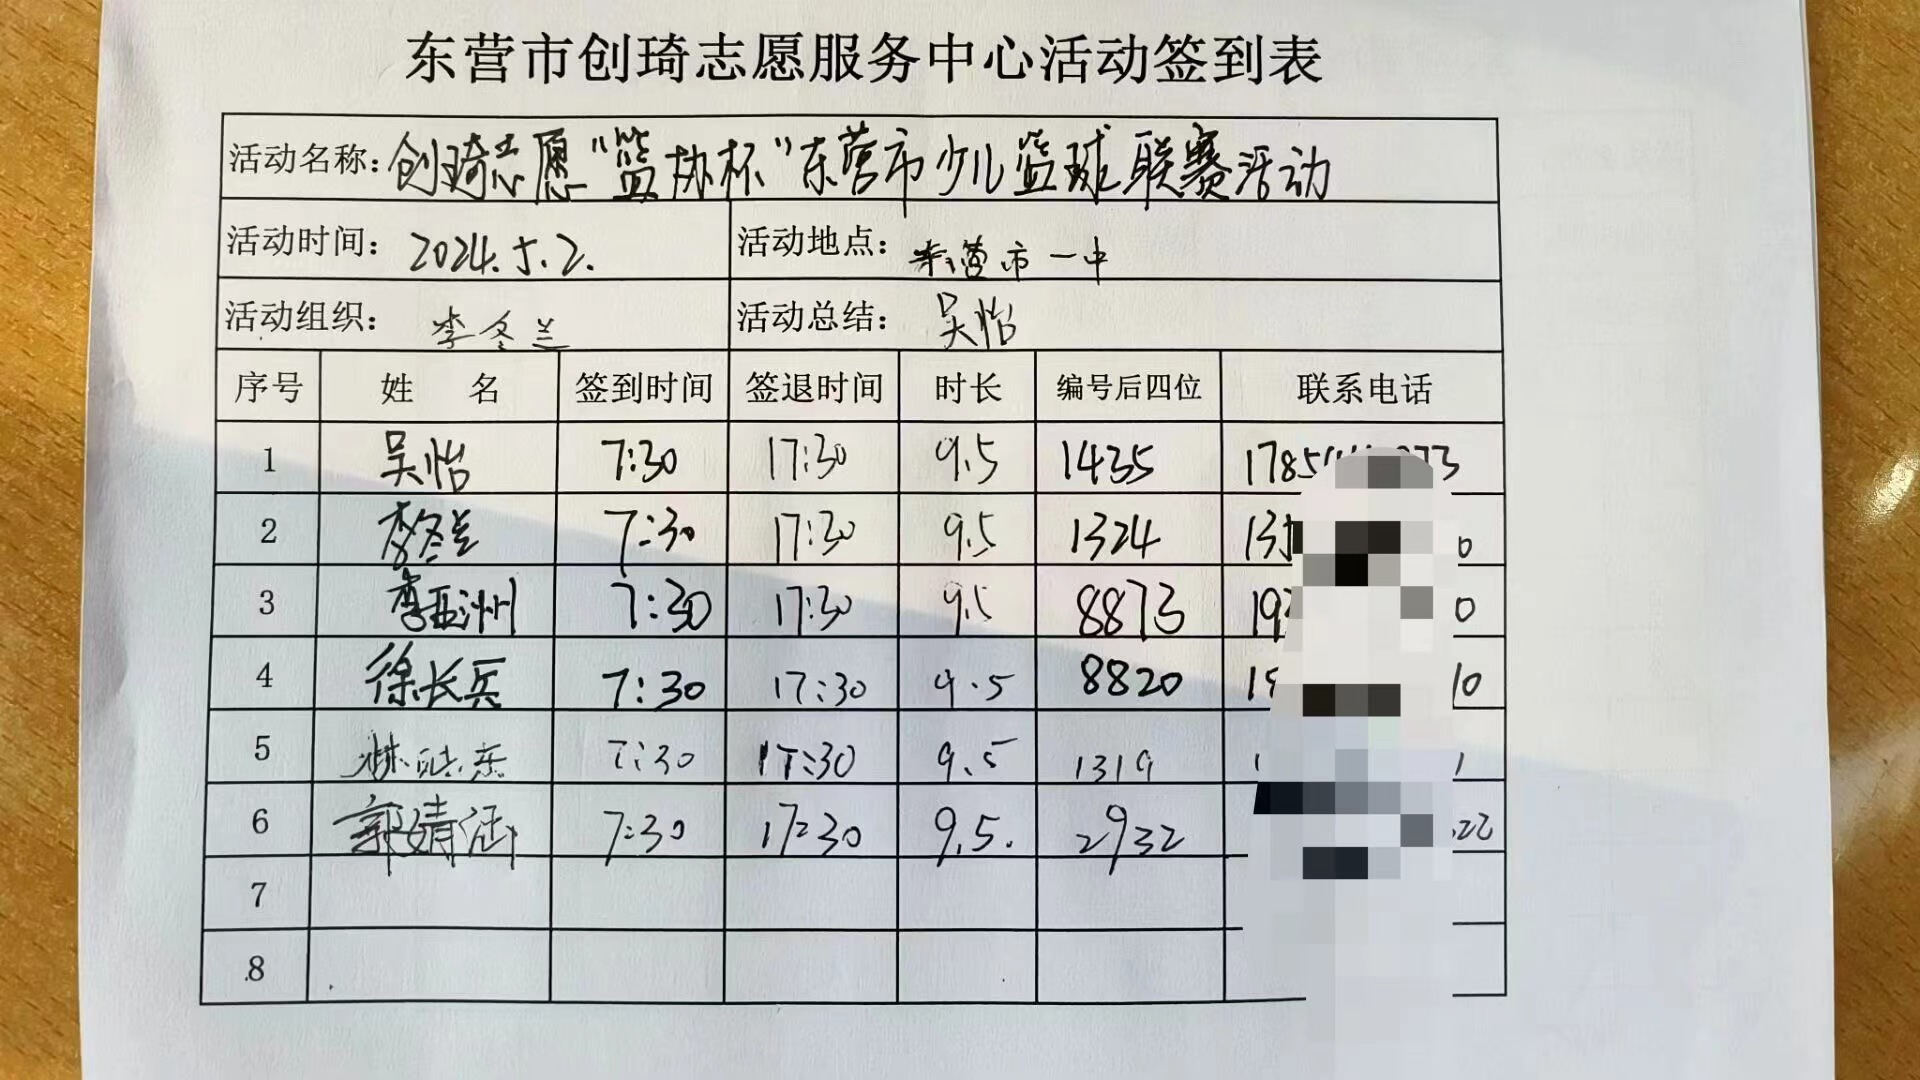 东营市创琦志愿服务中心活动签到表
活动名称：创琦志愿“篮协杯”东营市少儿篮球联赛活动
活动时间：2024.5.2. 活动地点：东营市一中
活动组织：李冬兰 活动总结：吴怡
序号 姓 名 签到时间 签退时间 时长 编号后四位 联系电话
1 吴怡 7:30 17:30 9.5 1435
2 李冬兰 7:30 17:30 9.5 1324
3 李亚洲 7:30 17:30 9.5 8873
4 徐长兵 7:30 17:30 9.5 8820
5 7:30 17:30 9.5 1319
6 郭婧涵 7:30 17:30 9.5. 2932
7
8